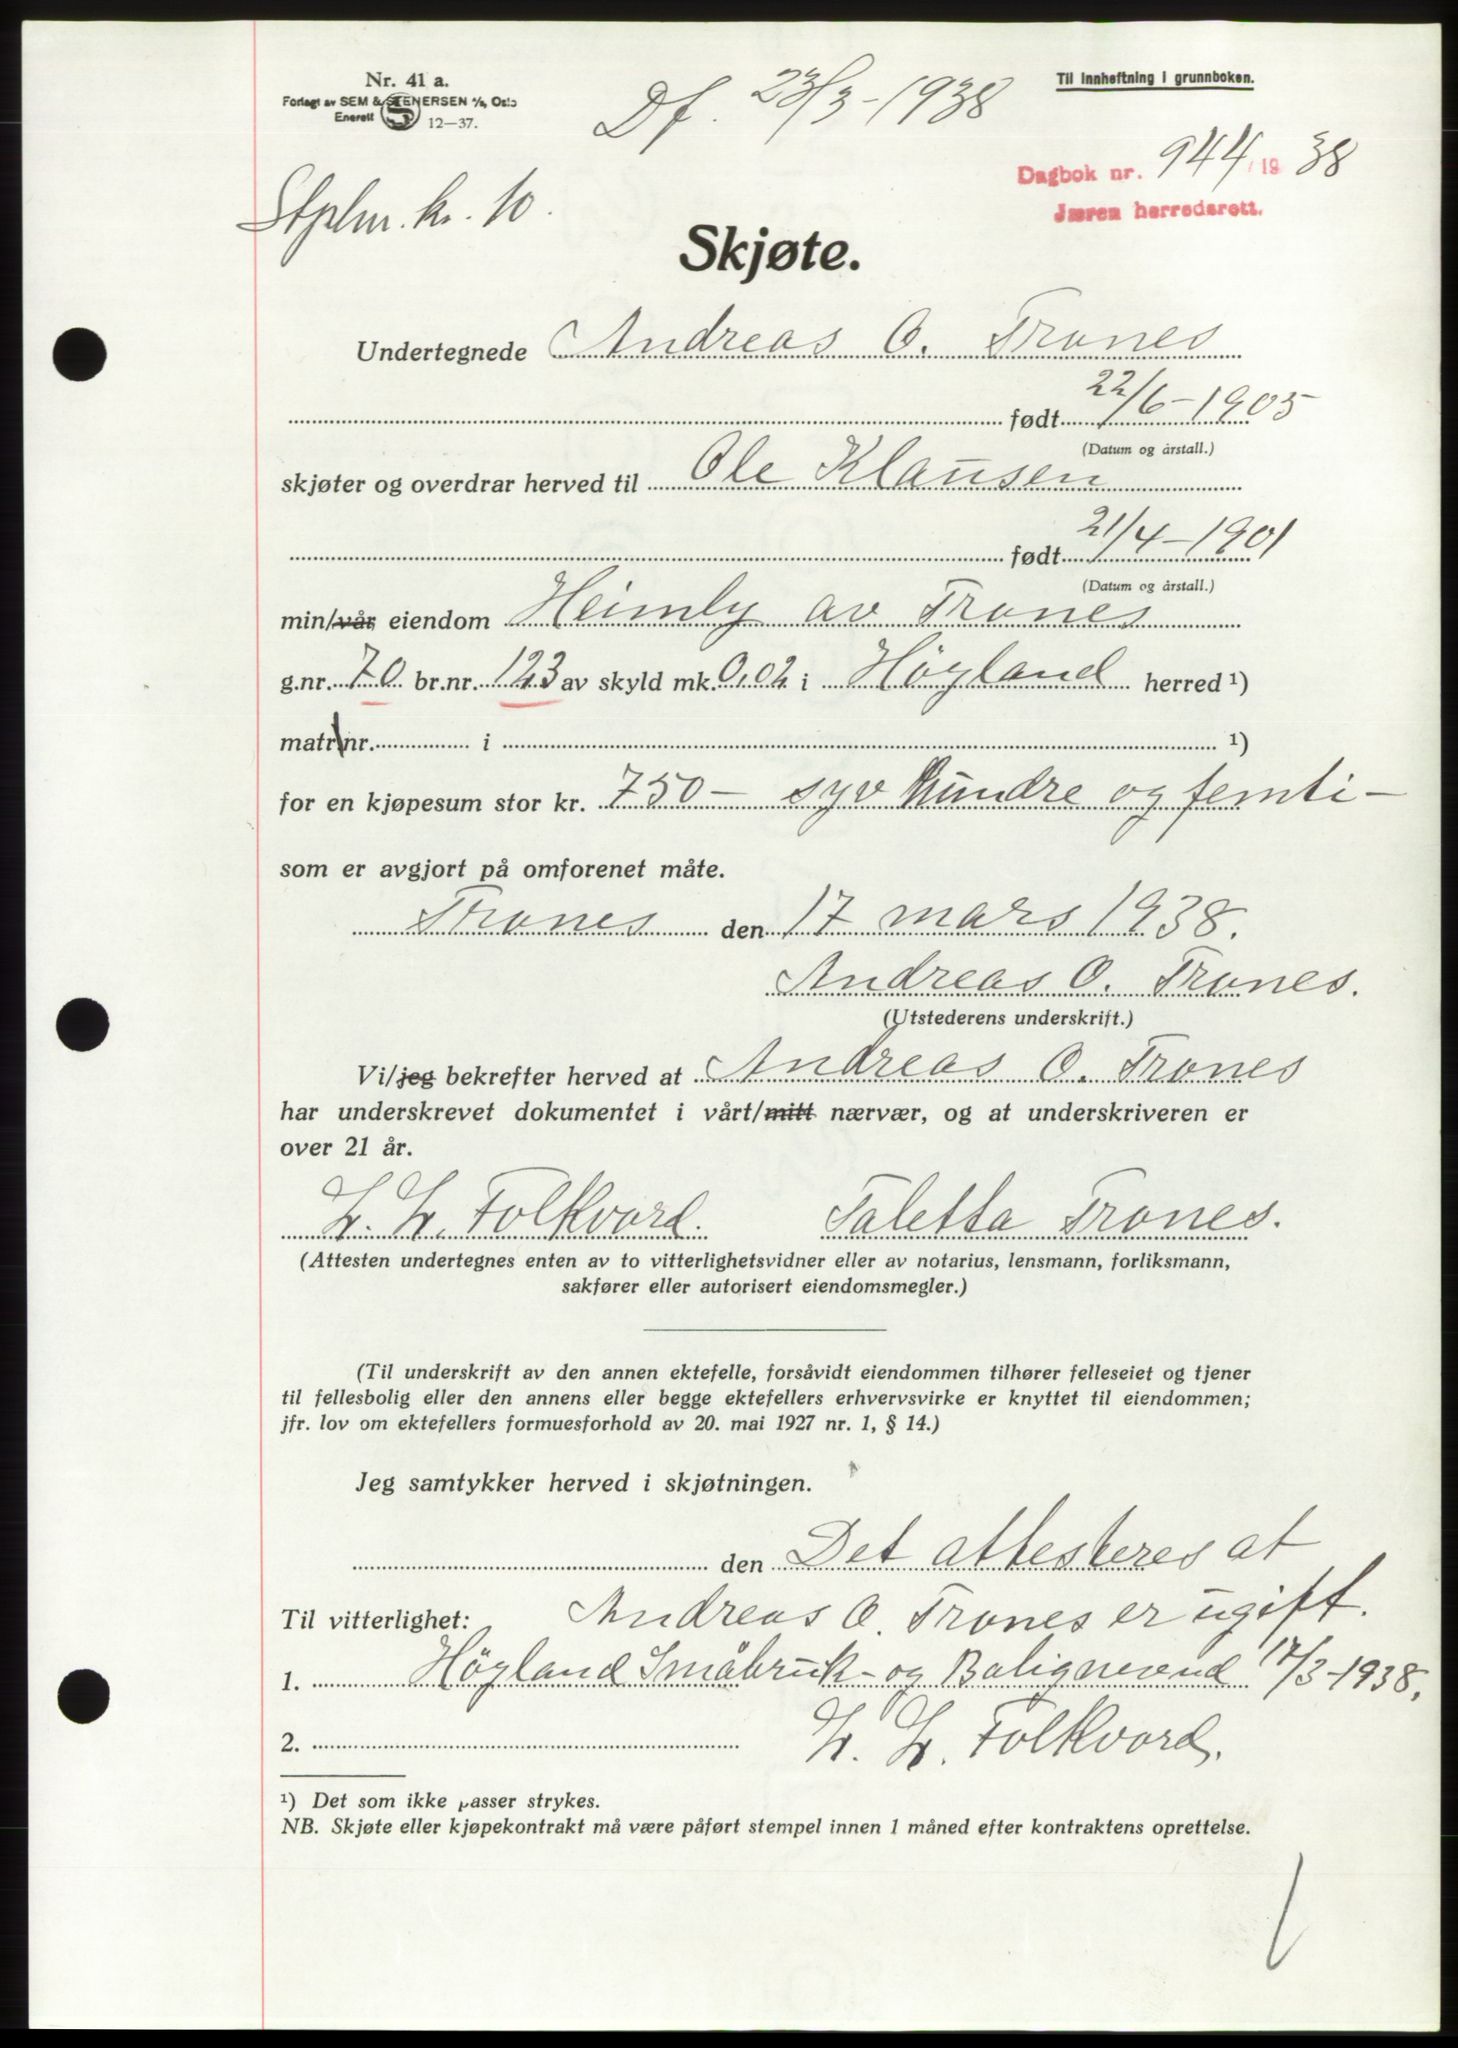 Nr. 41 a.
Forlagt av SEM & STENERSEN A/S, Oslo
Enerett 12—37.
Df. 23/3-1938
Til innheftning i grunnboken.
Dagbok nr. 944/1938
Jæren herredsrett.
Stplm. kr. 10.
Skjøte.
Undertegnede Andreas O. Trones
født 22/6-1905
(Datum og årstall.)
skjøter og overdrar herved til Ole Klausen
født 21/4-1901
(Datum og årstall.)
min/vår eiendom Heimly av Trones
g.nr. 70 br.nr. 123 av skyld mk. 0,02 i Høyland herred ¹)
matr.nr. i ¹)
for en kjøpesum stor kr. 750— syv hundre og femti —
som er avgjort på omforenet måte.
Trones den 17 mars 1938.
Andreas O. Trones.
(Utstederens underskrift.)
Vi/jeg bekrefter herved at Andreas O. Trones
har underskrevet dokumentet i vårt/mitt nærvær, og at underskriveren er
over 21 år.
Folkvord. Taletta Trones.
(Attesten undertegnes enten av to vitterlighetsvidner eller av notarius, lensmann, forliksmann,
sakfører eller autorisert eiendomsmegler.)
(Til underskrift av den annen ektefelle, forsåvidt eiendommen tilhører felleseiet og tjener
til fellesbolig eller den annens eller begge ektefellers erhvervsvirke er knyttet til eiendommen;
jfr. lov om ektefellers formuesforhold av 20. mai 1927 nr. 1, § 14.)
Jeg samtykker herved i skjøtningen.
den Det attesteres at
Til vitterlighet: Andreas O. Trones er ugift.
1. Høyland Småbruk- og Bolignevnd 17/3-1938.
2. Folkvord.
¹) Det som ikke passer strykes.
NB. Skjøte eller kjøpekontrakt må være påført stempel innen 1 måned efter kontraktens oprettelse.